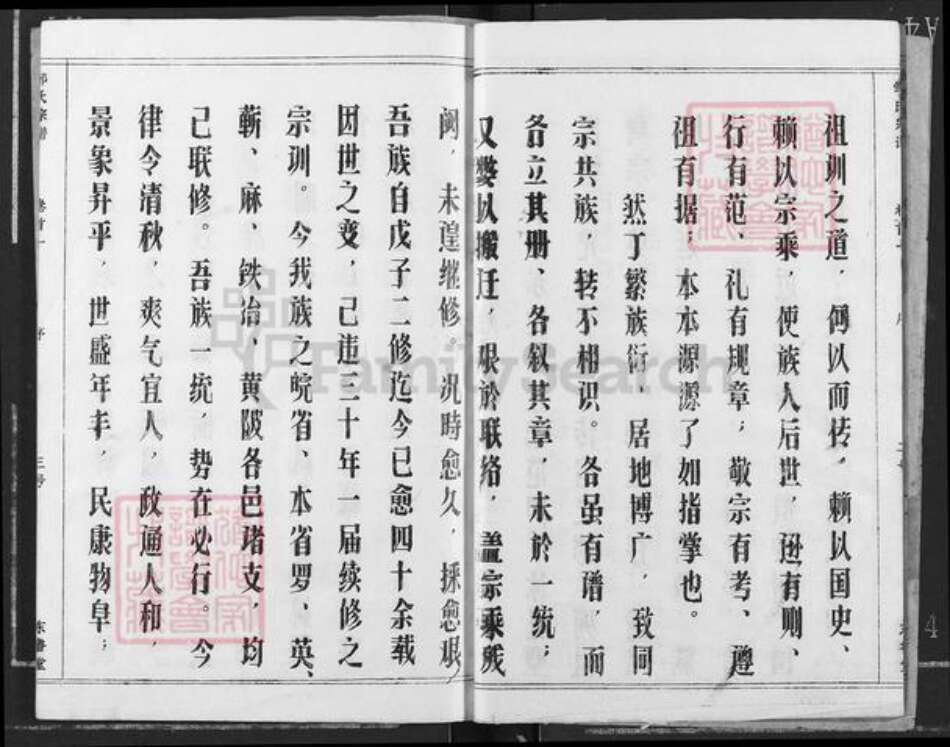 祖训之道，何以而传，赖以国史、
赖以宗乘，使族人后世，迹有则、
行有范、礼有规章，敬宗有考、遵
祖有据，本本源源了如指掌也。
然丁繁族衍，居地博广，致同
宗共族，转不相识。各虽有谱，而
各立其册、各叙其章，未於一统，
又娄以搬迁，艰於联络，盖宗乘残
阙，未遑继修。况時愈久，採愈艰
吾族自戊子二修迄今已愈四十余载
因世之变，已违三十年一届续修之
宗训。今我族之皖省、本省罗、英、
蕲、麻、铁冶、黄陂各邑诸支，均
已联修。吾族一统，势在必行。今
律令清秋，爽气宜人，政通人和，
景象昇平，世盛年丰，民康物阜，
三号
东鲁堂
FamilySearch